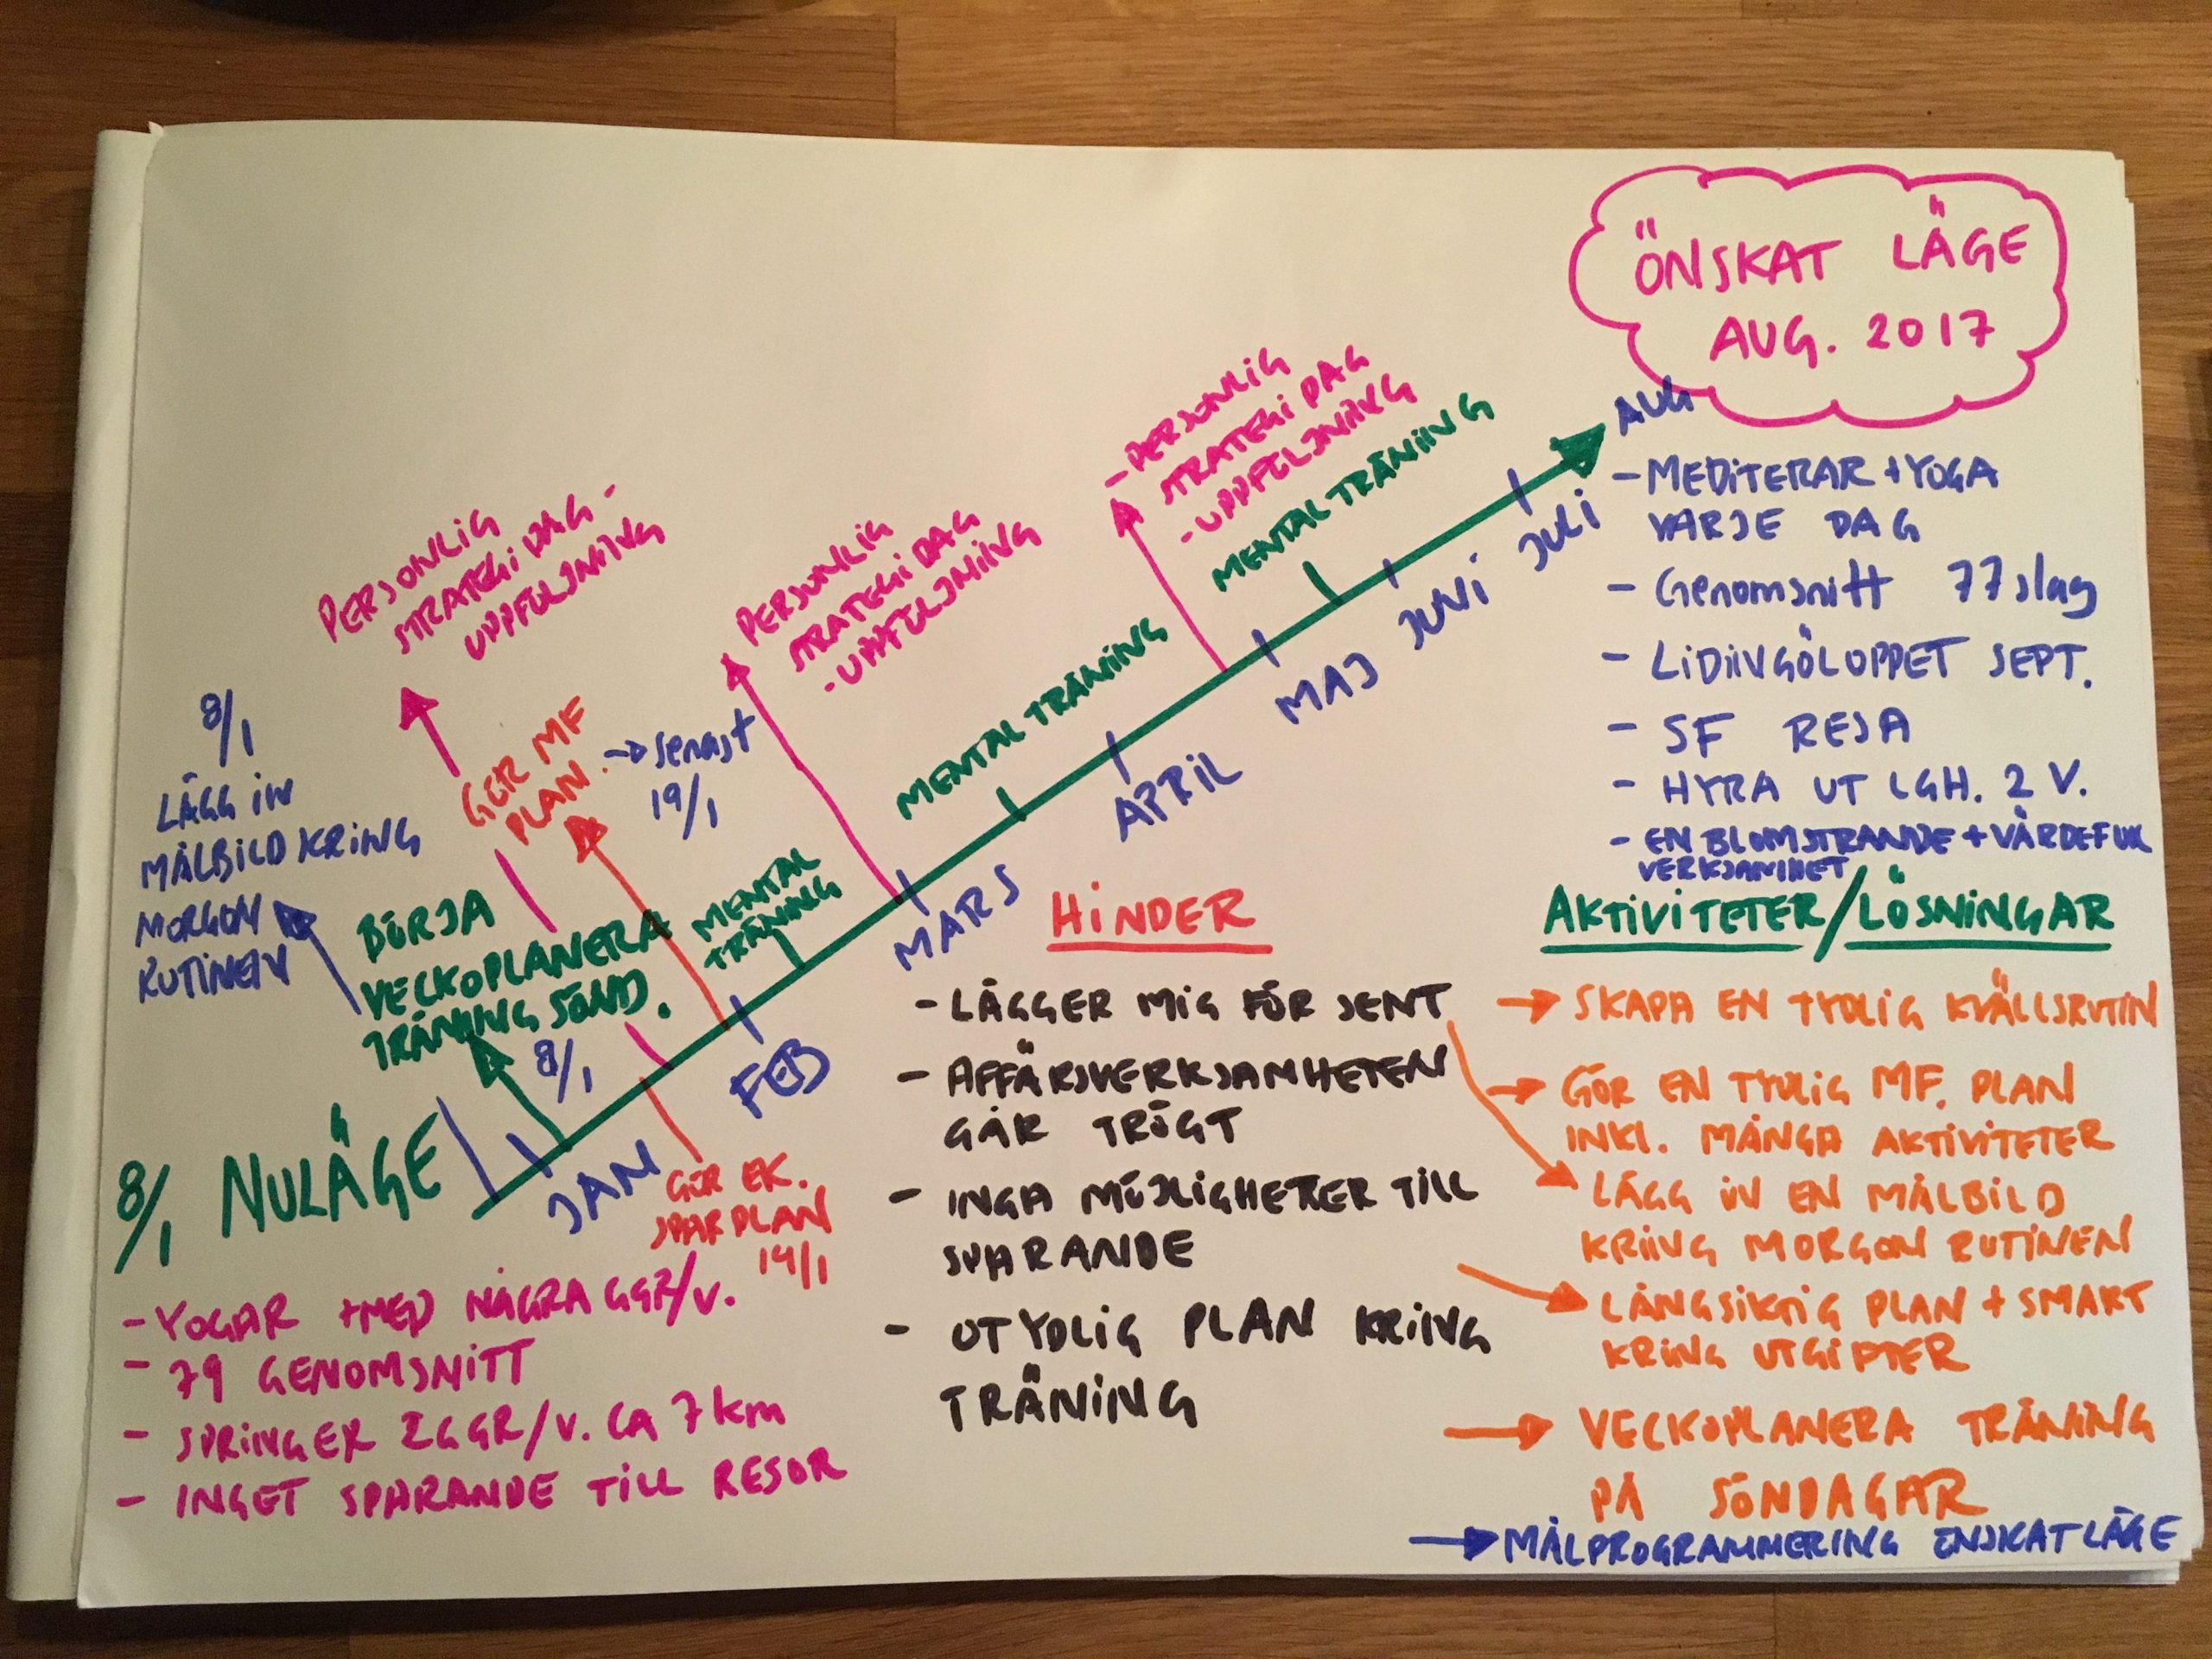 ÖNSKAT LÄGE
AUG. 2017
AUG
- MEDITERAR + YOGA
VARJE DAG
- Genomsnitt 77 slag
- LIDINGÖLOPPET SEPT.
- SF RESA
- HYRA UT LGH. 2 V.
- EN BLOMSTRANDE + VÄRDEFULL
VERKSAMHET
- PERSONLIG
STRATEGI DAG
- UPPFÖLJNING
MENTAL TRÄNING
PERSONLIG
STRATEGI DAG -
UPPFÖLJNING
PERSONLIG
STRATEGI DAG
- UPPFÖLJNING
MENTAL TRÄNING
8/1
LÄGG IN
MÅLBILD KRING
MORGON
RUTINEN
GÖR MF
PLAN.
→ senast
19/1
BÖRJA
VECKOPLANERA
TRÄNING SÖND.
8/1
MENTAL
TRÄNING
8/1 NULÄGE
JAN
FEB
MARS
APRIL
MAJ
JUNI
JULI
GÖR EK.
SPARPLAN
19/1
- YOGAR + MED NÅGRA GGR/V.
- 79 GENOMSNITT
- SPRINGER 2 GGR/V. CA 7 km
- INGET SPARANDE TILL RESOR
HINDER
- LÄGGER MIG FÖR SENT
- AFFÄRSVERKSAMHETEN
GÅR TRÖGT
- INGA MÖJLIGHETER TILL
SPARANDE
- OTYDLIG PLAN KRING
TRÄNING
AKTIVITETER/LÖSNINGAR
→ SKAPA EN TYDLIG KVÄLLSRUTIN
→ GÖR EN TYDLIG MF. PLAN
INKL. MÅNGA AKTIVITETER
LÄGG IN EN MÅLBILD
KRING MORGON RUTINEN
LÅNGSIKTIG PLAN + SMART
KRING UTGIFTER
→ VECKOPLANERA TRÄNING
PÅ SÖNDAGAR
→ MÅLPROGRAMMERING ÖNSKAT LÄGE